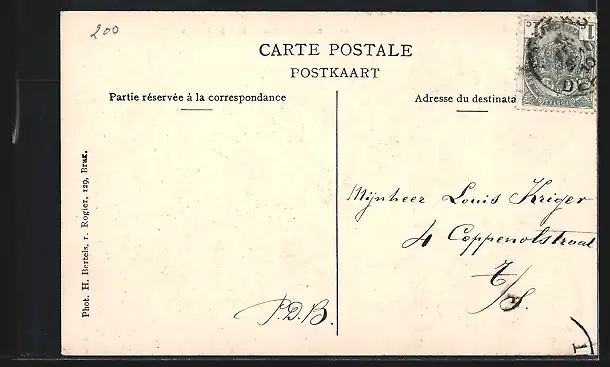 200
CARTE POSTALE
POSTKAART
Partie réservée à la correspondance
Adresse du destinata
Phot. H. Bertels, r. Rogier, 129, Brux.
Mijnheer Louis Kriger
4 Coppenolstraat
P.D.B.